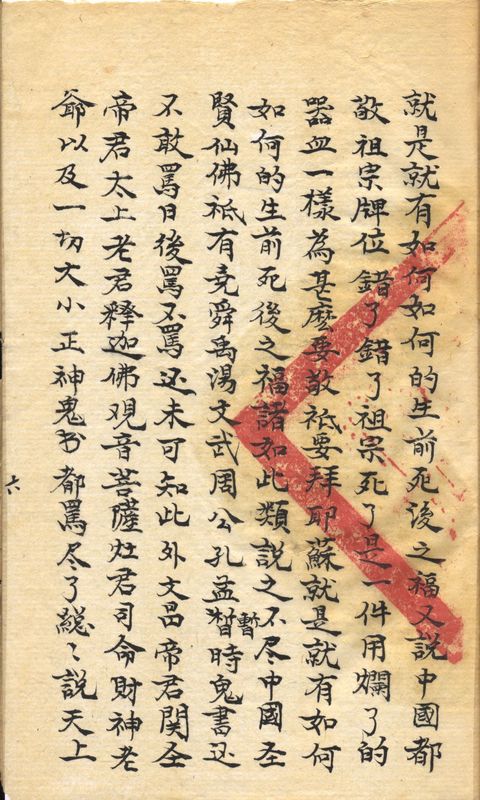 就是就有如何如何的生前死後之福又說中國都
敬祖宗牌位錯了錯了祖宗死了是一件用爛了的
器皿一樣為甚麽要敬祗要拜耶蘇就是就有如何
如何的生前死後之福諸如此類說之不尽中國圣
賢仙佛祗有尭舜禹湯文武周公孔孟暫時鬼書还
不敢罵日後罵不罵还未可知此外文昌帝君関圣
帝君太上老君释迦佛观音菩薩灶君司命財神老
爺以及一切大小正神鬼书都罵尽了縂〻説天上
六